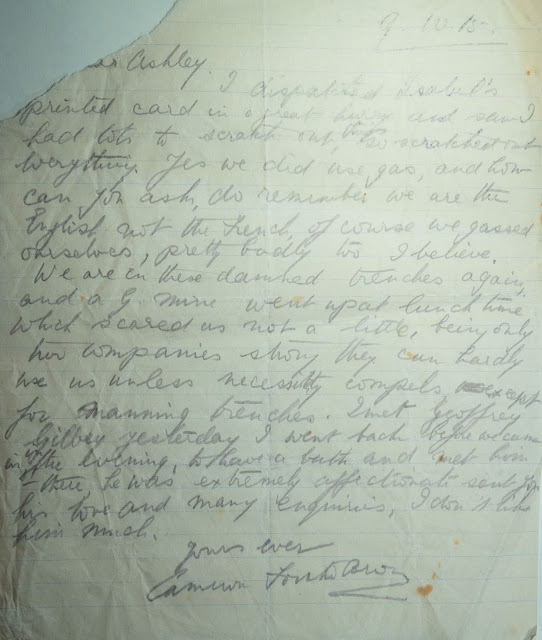 9. 10. 15.
ar Ashley.
I dispatched Isabel's
printed card in a great hurry and saw I
had lots to scratch out, so scratched out
everything. Yes we did use gas, and how
can you ask, do remember we are the
English not the French, of course we gassed
ourselves, pretty badly too I believe.
We are in these damned trenches again,
and a G. mine went up at lunch time
which scared us not a little, being only
two companies strong they can hardly
use us unless necessity compels except
for manning trenches. I met Geoffrey
Gilbey yesterday I went back before we came
in the evening, to have a bath and met him
there, he was extremely affectionate sent you
his love and many enquiries, I don't like
him much.
Yours ever
Cameron